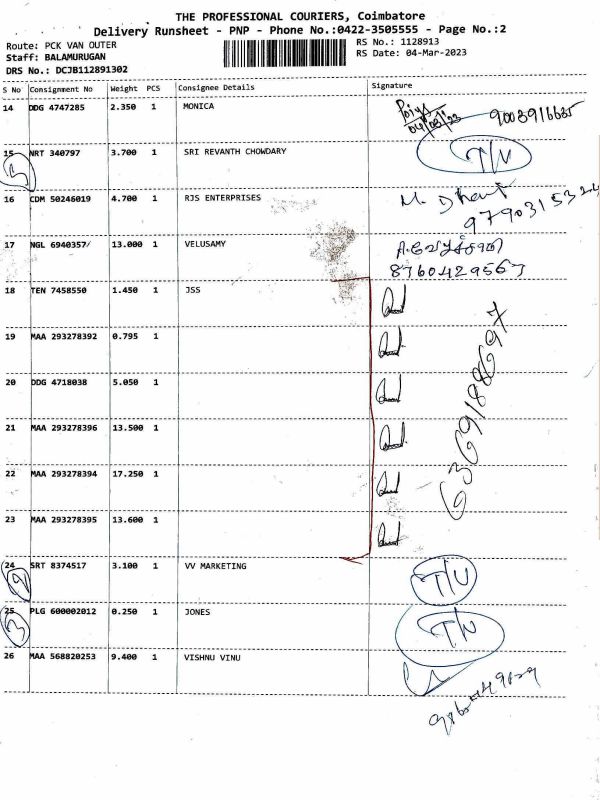 THE PROFESSIONAL COURIERS, Coimbatore
Delivery Runsheet - PNP - Phone No.:0422-3505555 - Page No.:2
Route: PCK VAN OUTER RS No.: 1128913
Staff: BALAMURUGAN RS Date: 04-Mar-2023
DRS No.: DCJB112891302
S No Consignment No Weight PCS Consignee Details Signature
14 DDG 4747285 2.350 1 MONICA 9003916635
15 NRT 340797 3.700 1 SRI REVANTH CHOWDARY T/N
5
16 CDM 50246019 4.700 1 RJS ENTERPRISES
17 NGL 6940357/ 13.000 1 VELUSAMY
8760429567
18 TEN 7458550 1.450 1 JSS
19 MAA 293278392 0.795 1
20 DDG 4718038 5.050 1
21 MAA 293278396 13.500 1
22 MAA 293278394 17.250 1
23 MAA 293278395 13.600 1
6369188697
24 SRT 8374517 3.100 1 VV MARKETING T/N
2
25 PLG 600002012 0.250 1 JONES T/N
3
26 MAA 568820253 9.400 1 VISHNU VINU